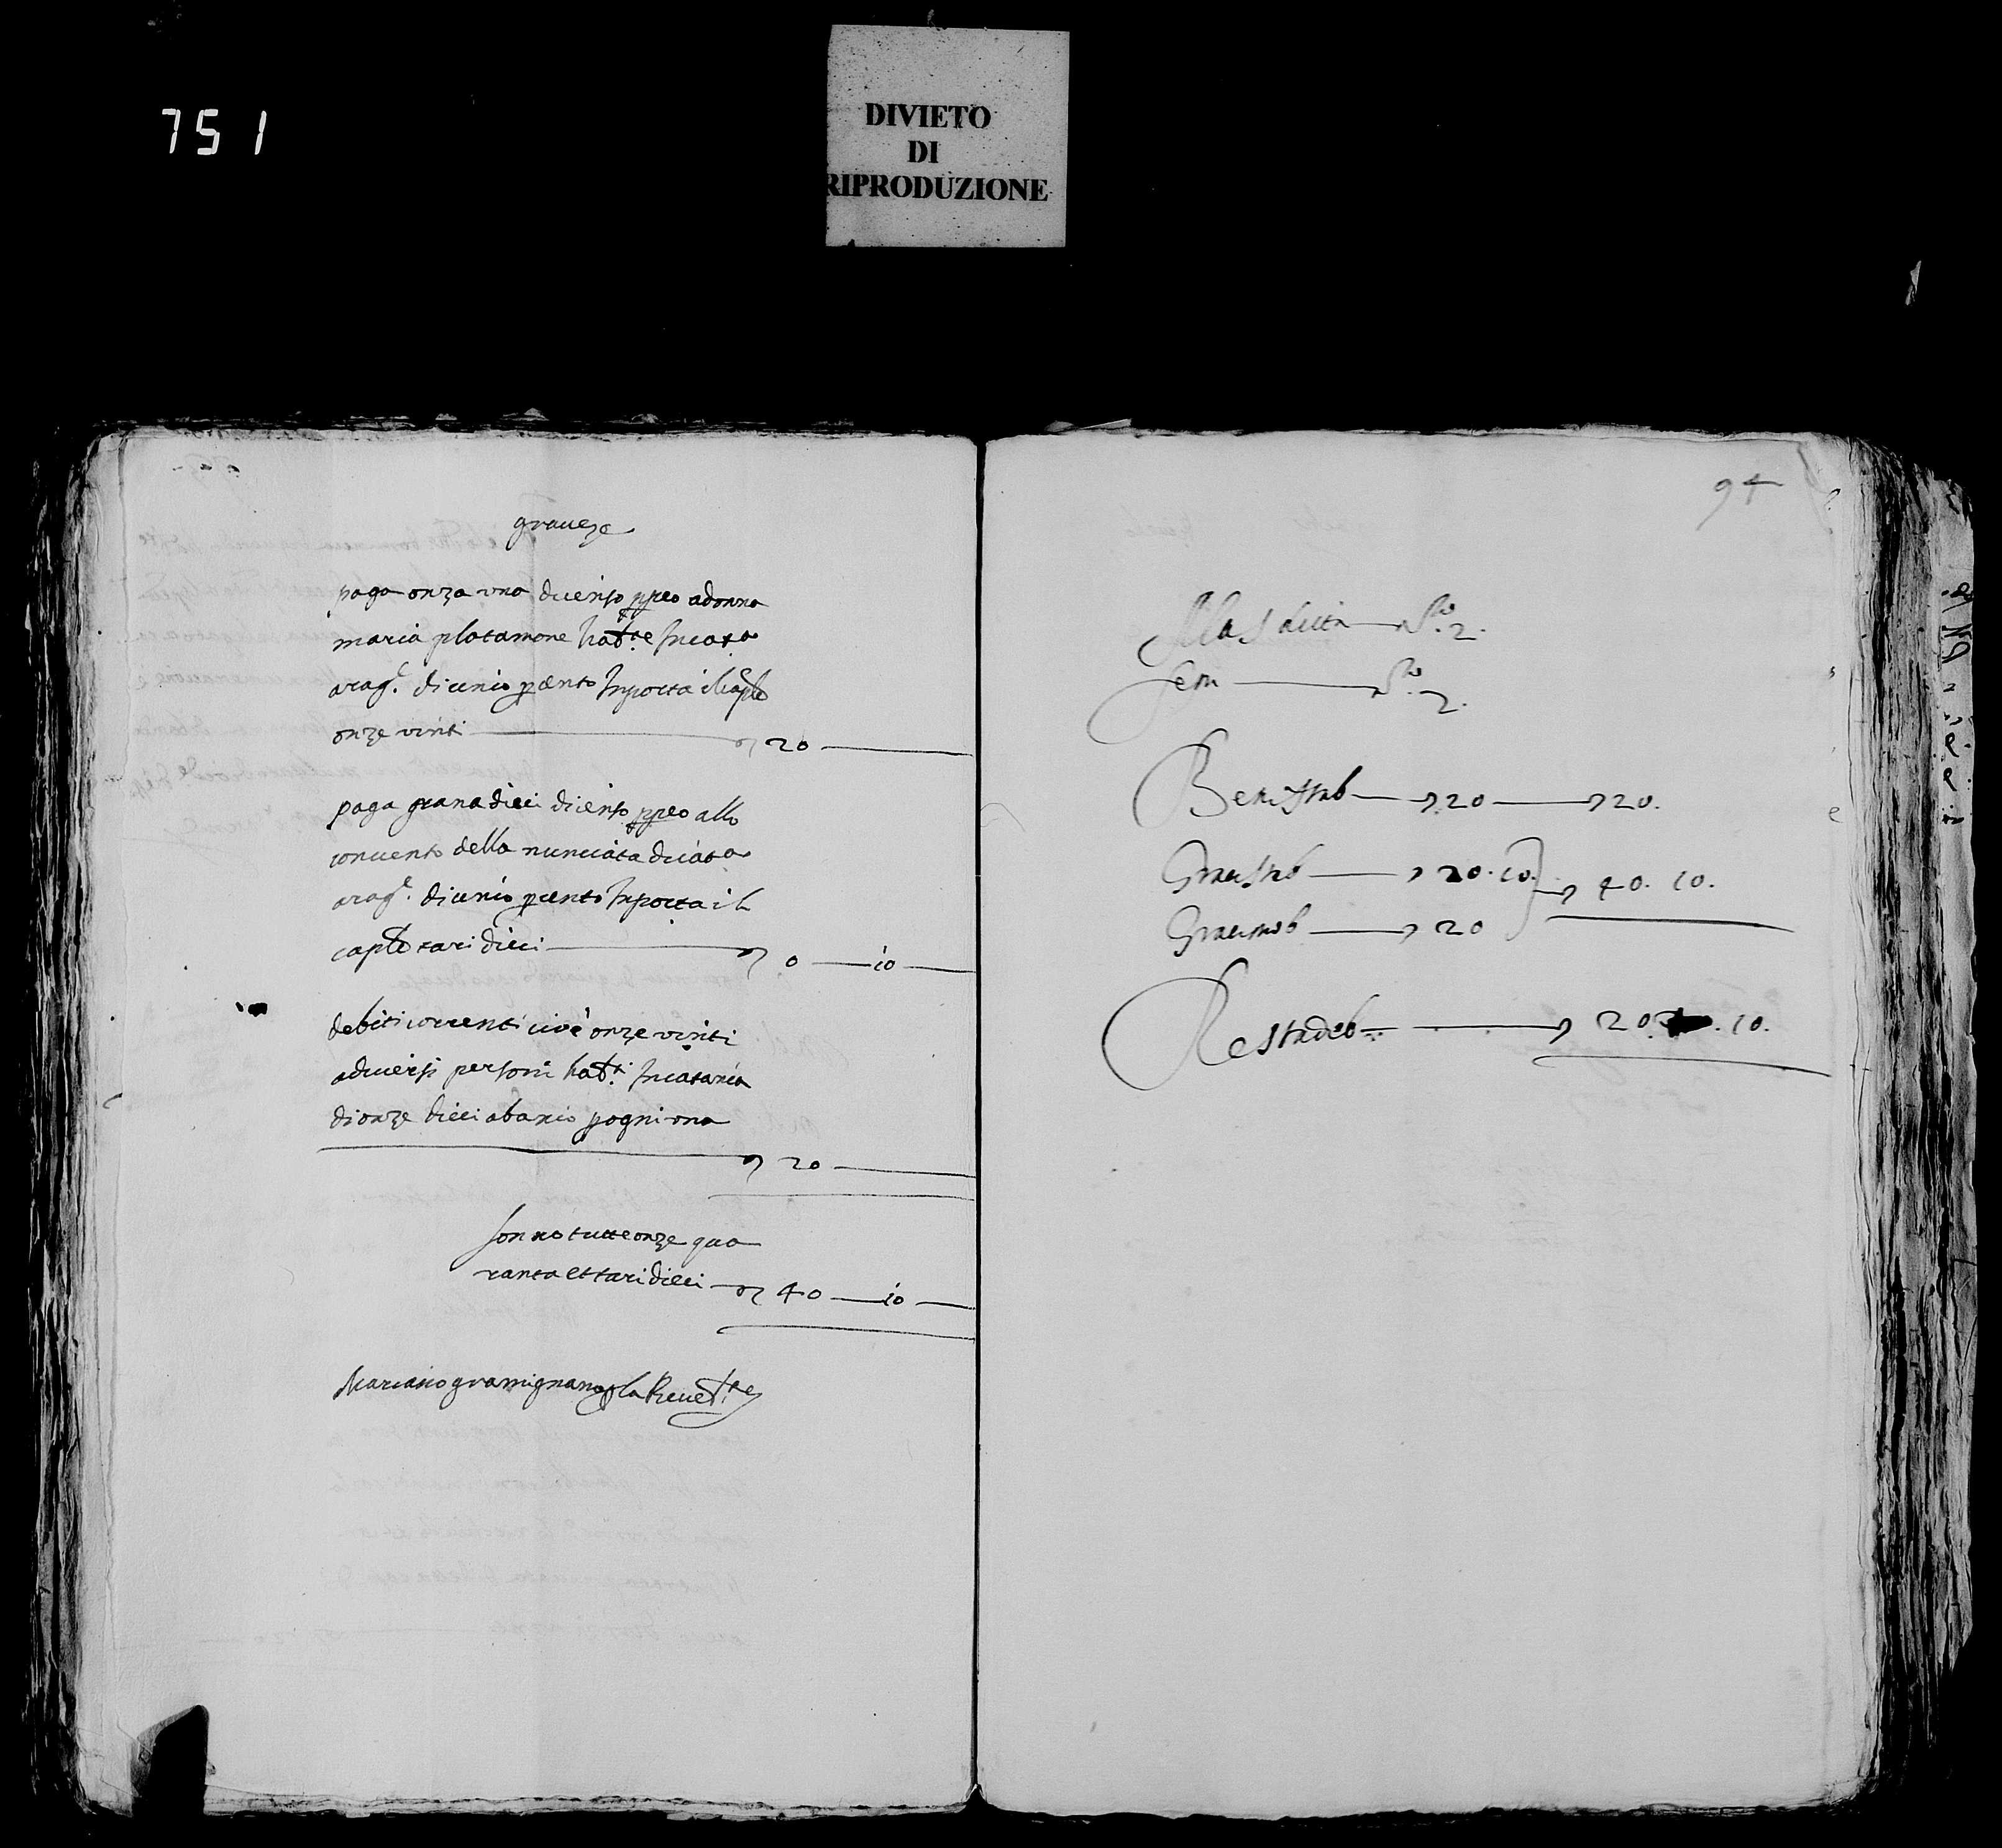 751
DIVIETO
DI
RIPRODUZIONE
graueze
paga onza una di censo ppeo a donna
maria platamone hab.te In cat.a
a rag.e di cinco per cento Importa il caple
onze vinti 20
paga grana dieci di censo ppeo allo
conuento della nunciata di cat.a
a rag.e di cinco per cento Importa il
caple tari dieci 0 10
debiti correnti cioè onze vinti
a diuersi persone hab.ti In catania
di onze dieci a bascio p ogni una
20
sonno tutte onze qua
ranta et tari dieci 40 10
Mariano gramignano p la Reue
94
Mas N.o 2.
fem N.o 2.
Beni stab 20 20.
Grau stab 20.10. 40.10.
Grau mob 20
Resta deb 20. 10.